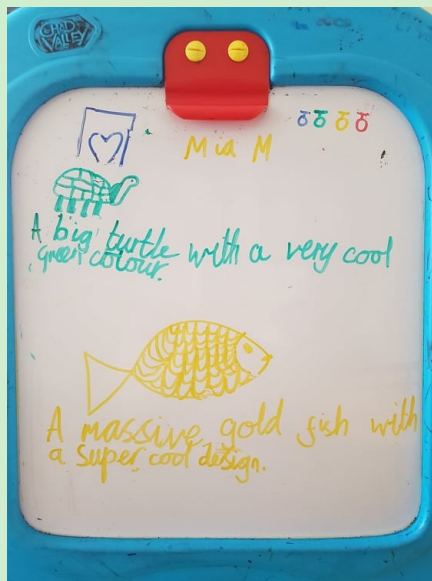 CHAD VALLEY
Mia M
A big turtle with a very cool
green colour.
A massive gold fish with
a super cool design.